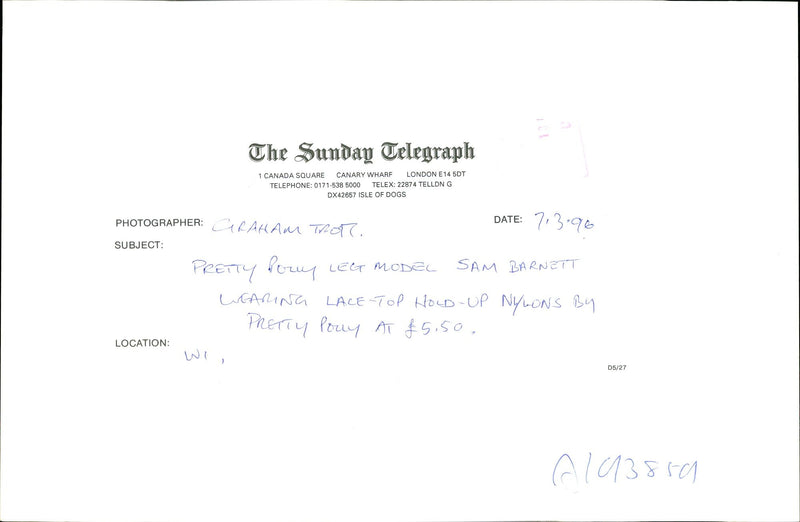 The Sunday Telegraph
1 CANADA SQUARE CANARY WHARF LONDON E14 5DT
TELEPHONE: 0171-538 5000 TELEX: 22874 TELLDN G
DX42657 ISLE OF DOGS
PHOTOGRAPHER: GRAHAM TROTT. DATE: 7.3.96
SUBJECT:
PRETTY POLLY LEG MODEL SAM BARNETT
WEARING LACE-TOP HOLD-UP NYLONS BY
PRETTY POLLY AT £5.50.
LOCATION:
W1.
D5/27
193859